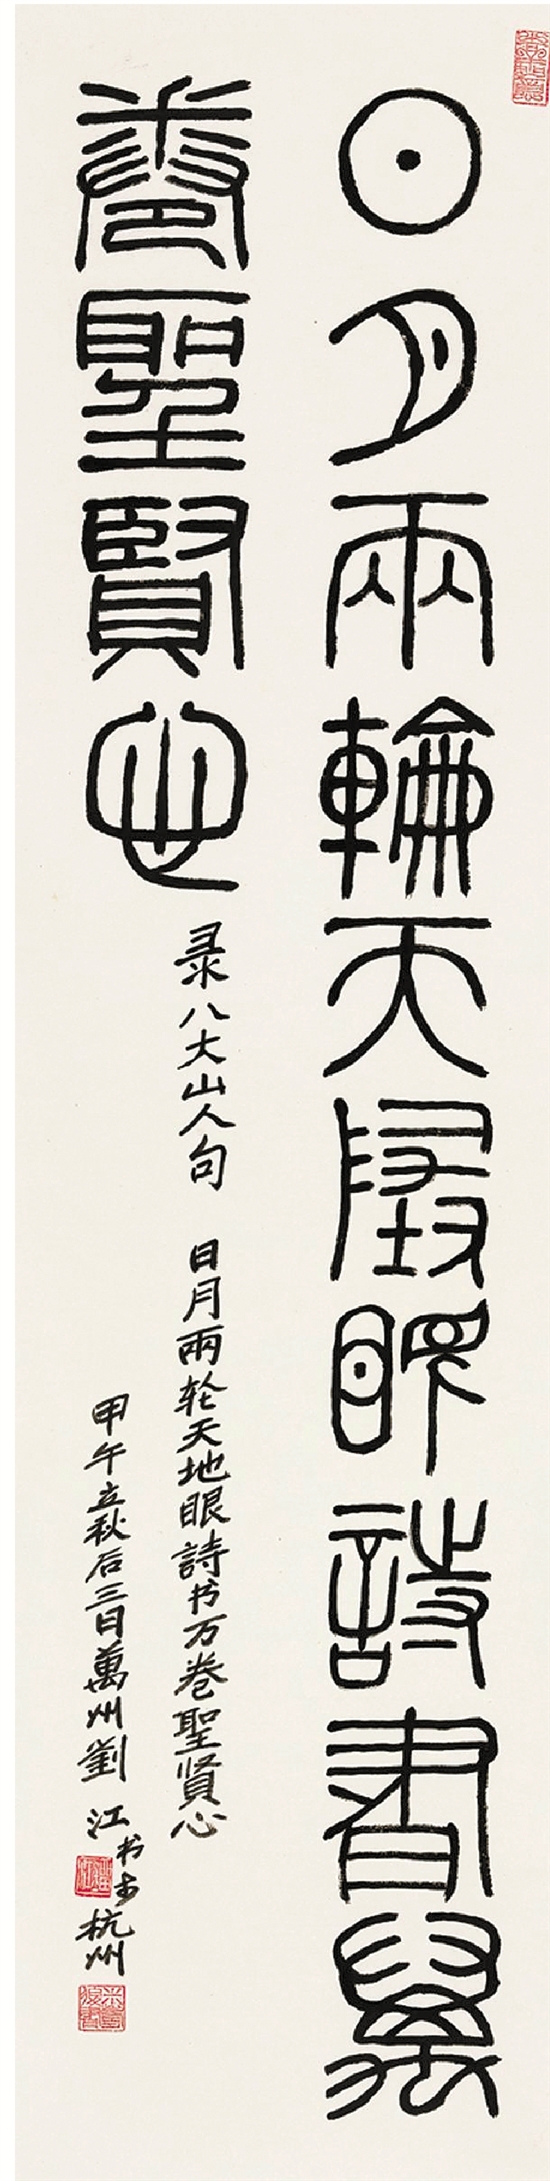 日月兩輪天地眼詩書萬
卷聖賢心
录八大山人句 日月兩轮天地眼詩书万卷聖贤心
甲午立秋后三日萬州劉江书于杭州